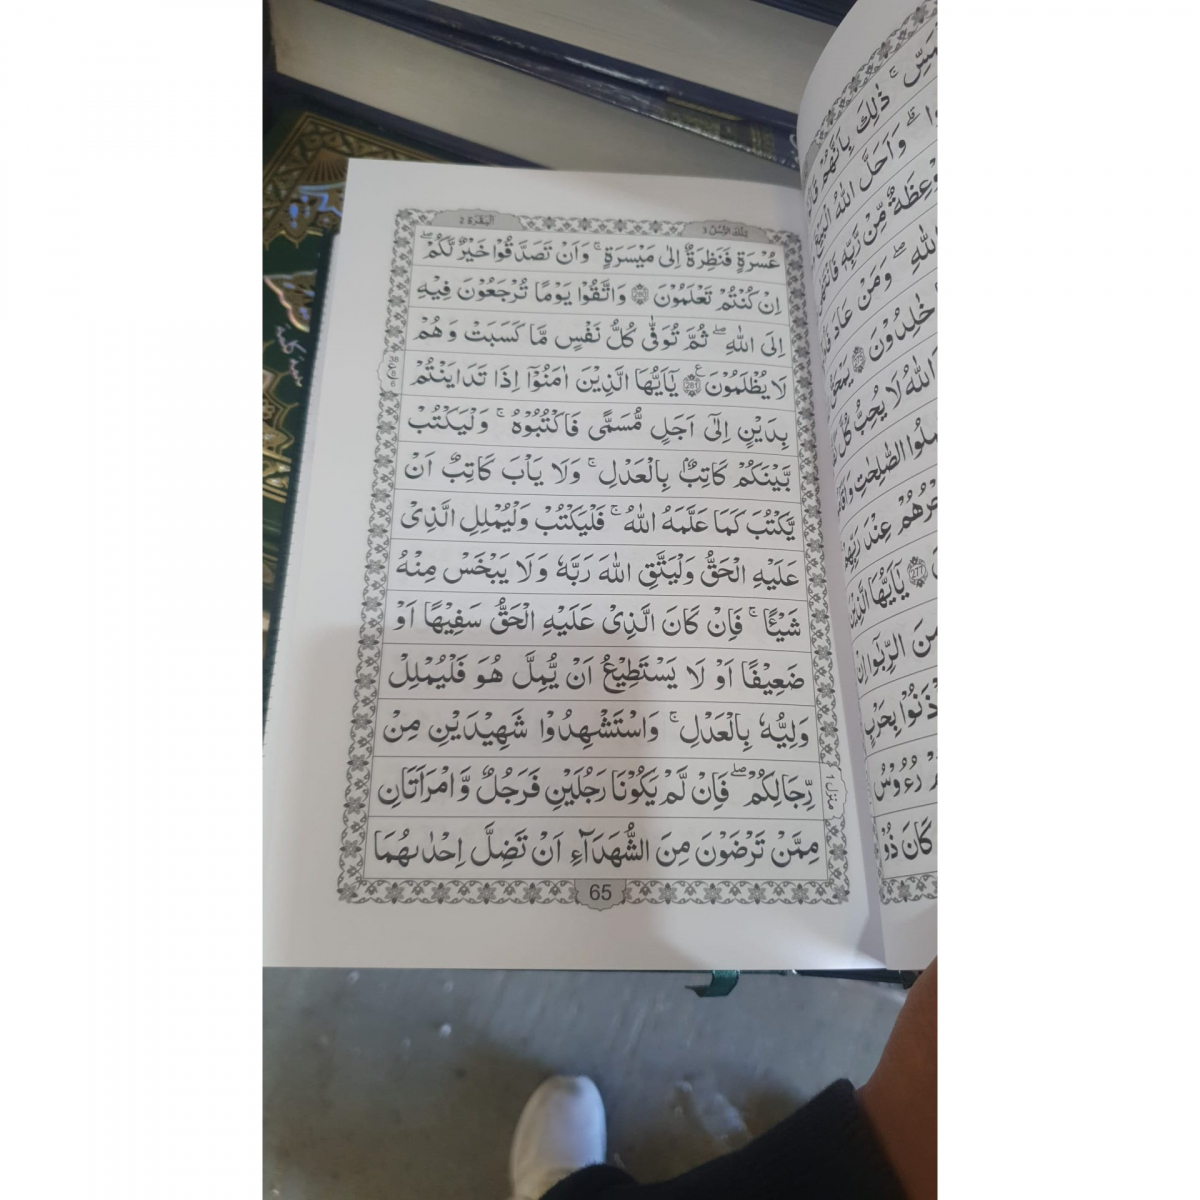 تلك الرسل 3
البقرة 2
عُسْرَةٍ فَنَظِرَةٌ اِلٰى مَيْسَرَةٍ ۚ وَاَنْ تَصَدَّقُوْا خَيْرٌ لَّكُمْ ۖ
اِنْ كُنْتُمْ تَعْلَمُوْنَ ۝280 وَاتَّقُوْا يَوْمًا تُرْجَعُوْنَ فِيْهِ
اِلَى اللّٰهِ ۖ ثُمَّ تُوَفّٰى كُلُّ نَفْسٍ مَّا كَسَبَتْ وَهُمْ
لَا يُظْلَمُوْنَ ۝281 ع يٰٓاَيُّهَا الَّذِيْنَ اٰمَنُوْٓا اِذَا تَدَايَنْتُمْ
بِدَيْنٍ اِلٰٓى اَجَلٍ مُّسَمًّى فَاكْتُبُوْهُ ۚ وَلْيَكْتُبْ
بَّيْنَكُمْ كَاتِبٌۢ بِالْعَدْلِ ۚ وَلَا يَاْبَ كَاتِبٌ اَنْ
يَّكْتُبَ كَمَا عَلَّمَهُ اللّٰهُ ۚ فَلْيَكْتُبْ وَلْيُمْلِلِ الَّذِيْ
عَلَيْهِ الْحَقُّ وَلْيَتَّقِ اللّٰهَ رَبَّهٗ وَلَا يَبْخَسْ مِنْهُ
شَيْـًٔا ۚ فَاِنْ كَانَ الَّذِيْ عَلَيْهِ الْحَقُّ سَفِيْهًا اَوْ
ضَعِيْفًا اَوْ لَا يَسْتَطِيْعُ اَنْ يُّمِلَّ هُوَ فَلْيُمْلِلْ
وَلِيُّهٗ بِالْعَدْلِ ۚ وَاسْتَشْهِدُوْا شَهِيْدَيْنِ مِنْ
رِّجَالِكُمْ ۖ فَاِنْ لَّمْ يَكُوْنَا رَجُلَيْنِ فَرَجُلٌ وَّامْرَاَتَانِ
مِمَّنْ تَرْضَوْنَ مِنَ الشُّهَدَآءِ اَنْ تَضِلَّ اِحْدٰىهُمَا
منزل 1
65
ذٰلِكَ بِاَنَّهُمْ
وَاَحَلَّ اللّٰهُ الْبَيْعَ
مِّنْ رَّبِّهٖ
وَمَنْ عَادَ
خٰلِدُوْنَ ۝275
لَا يُحِبُّ كُلَّ
الصّٰلِحٰتِ
عِنْدَ رَبِّهِمْ
۝277 يٰٓاَيُّهَا الَّذِيْنَ
الرِّبٰوا اِنْ
بِحَرْبٍ
رُءُوْسُ
كَانَ ذُوْ